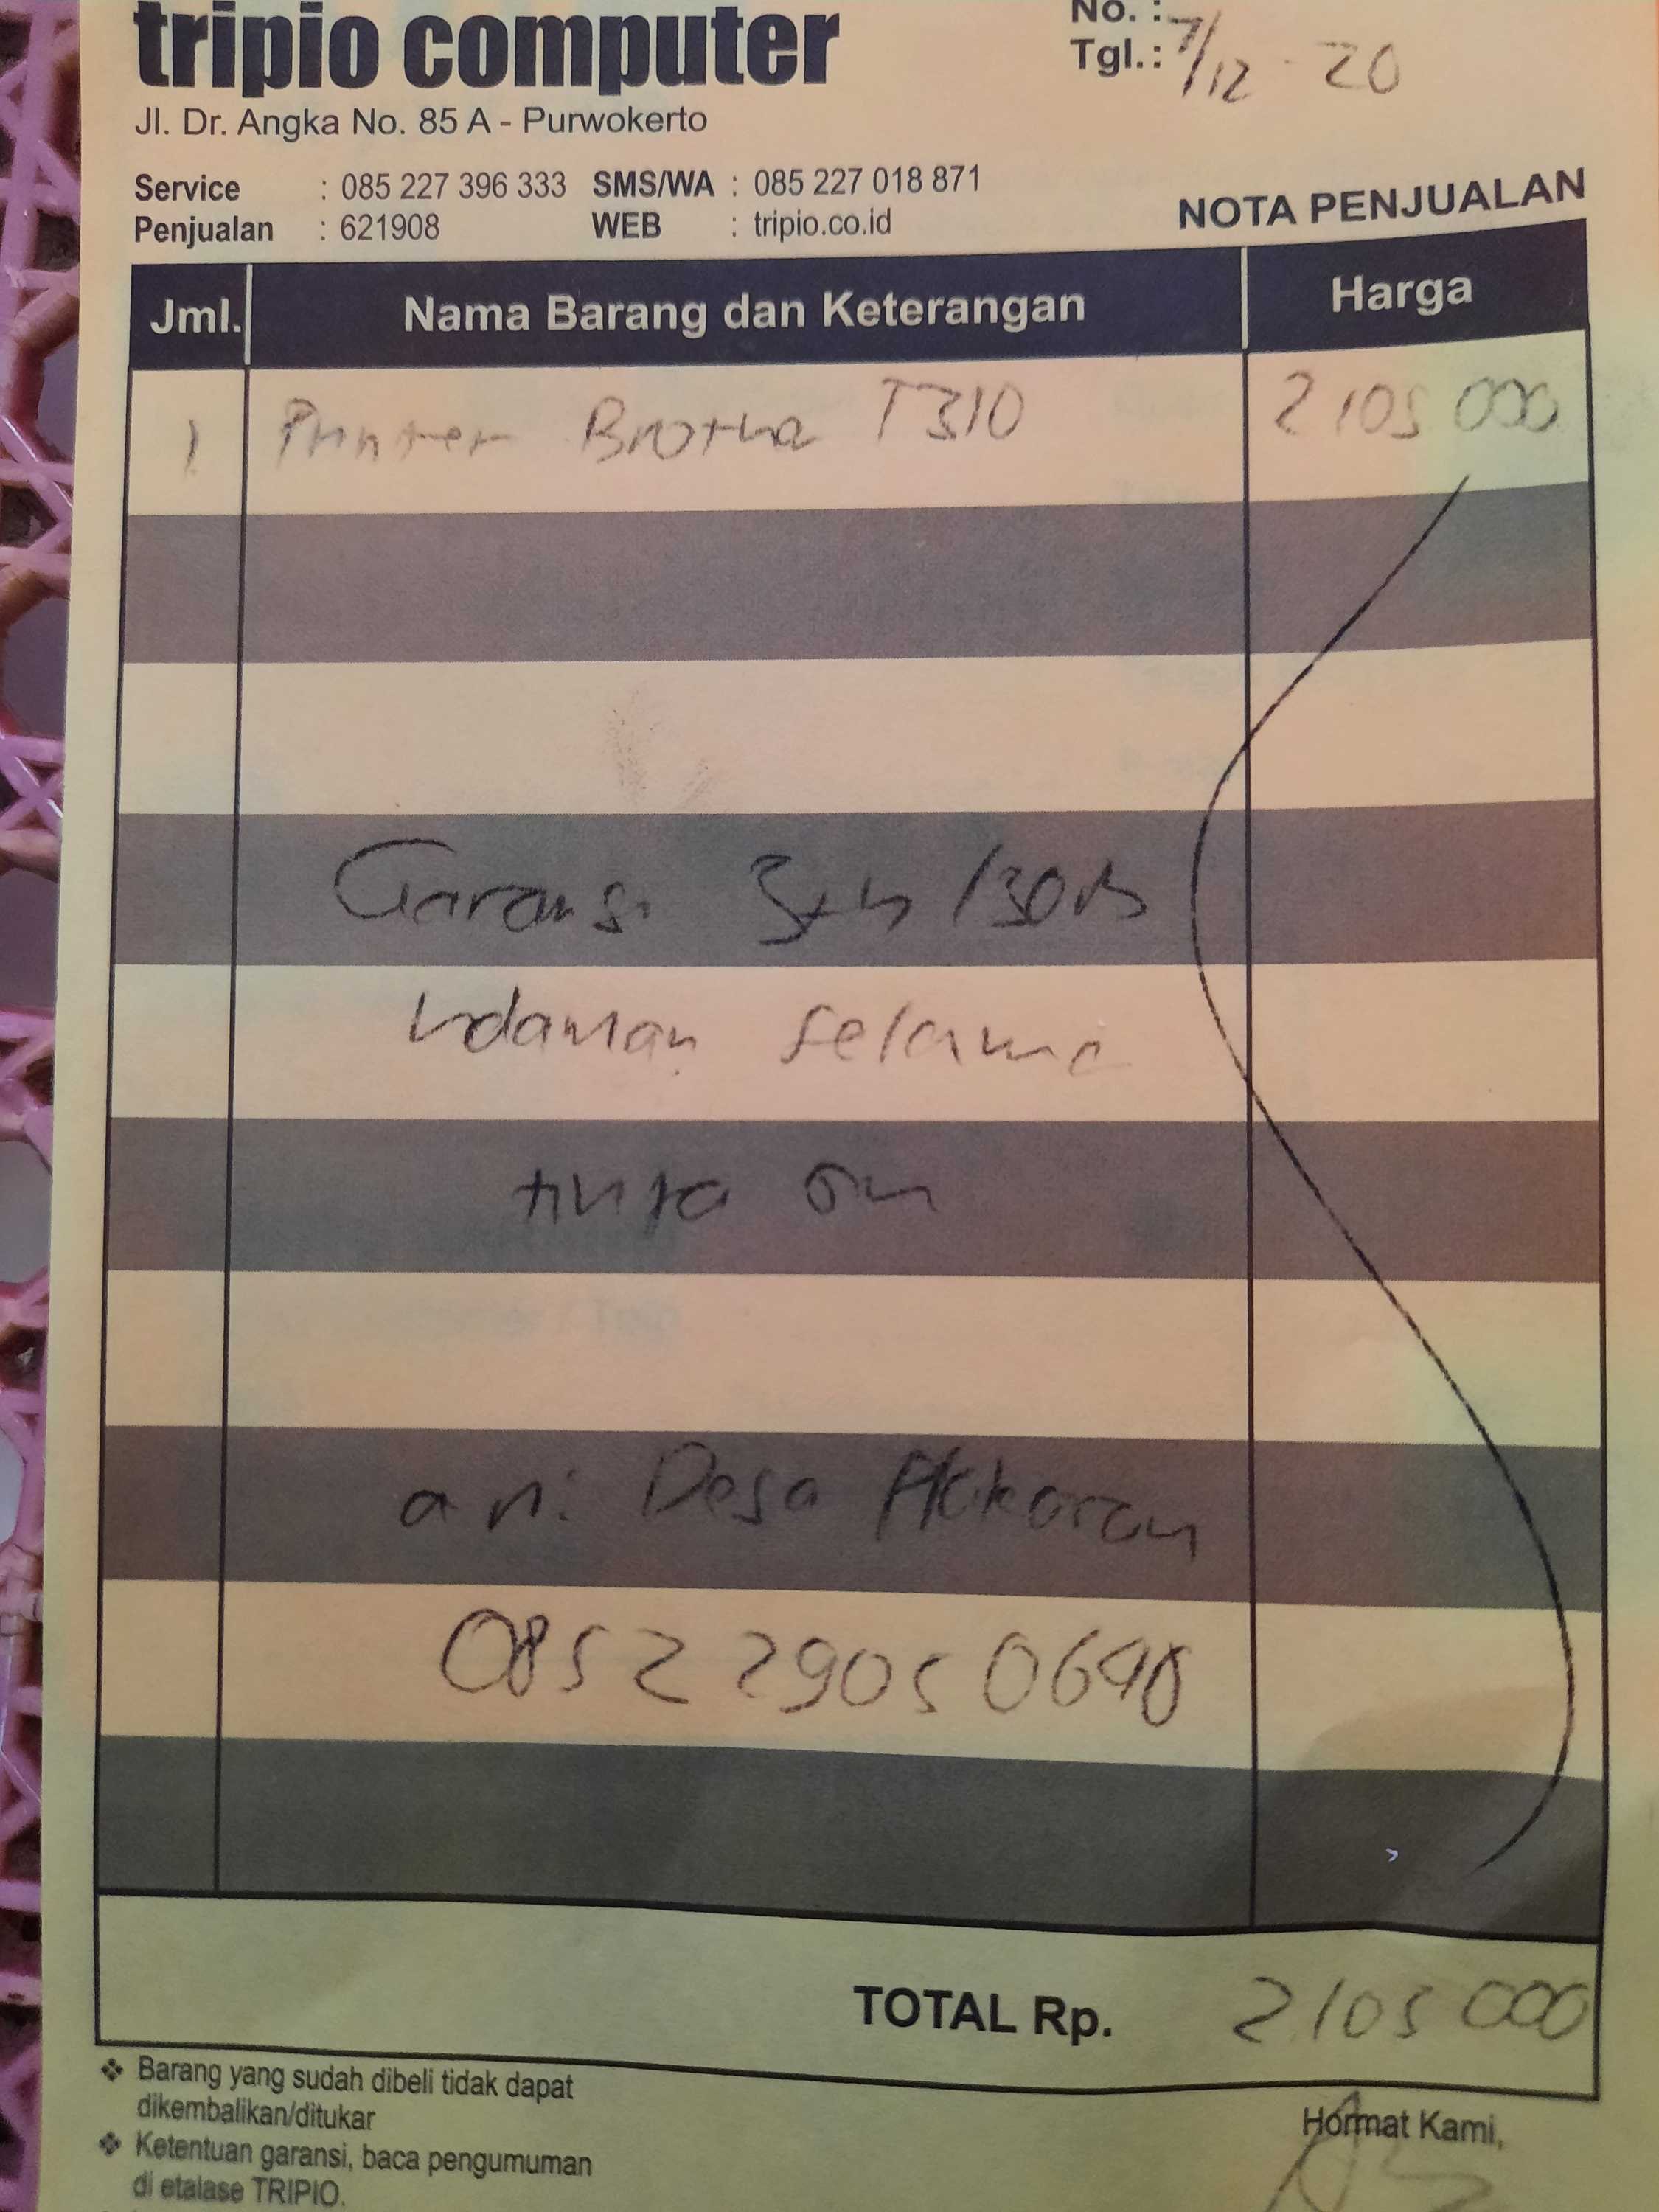 tripio computer
No. :
Tgl.: 7/12 - 20
Jl. Dr. Angka No. 85 A - Purwokerto
Service : 085 227 396 333 SMS/WA : 085 227 018 871
Penjualan : 621908 WEB : tripio.co.id
NOTA PENJUALAN
Jml. Nama Barang dan Keterangan Harga
1 Printer Brother T310 2105 000
Garansi
selama
tinta
an: Desa
0852 2905 0698
TOTAL Rp. 2105 000
Barang yang sudah dibeli tidak dapat
dikembalikan/ditukar
Hormat Kami,
Ketentuan garansi, baca pengumuman
di etalase TRIPIO.